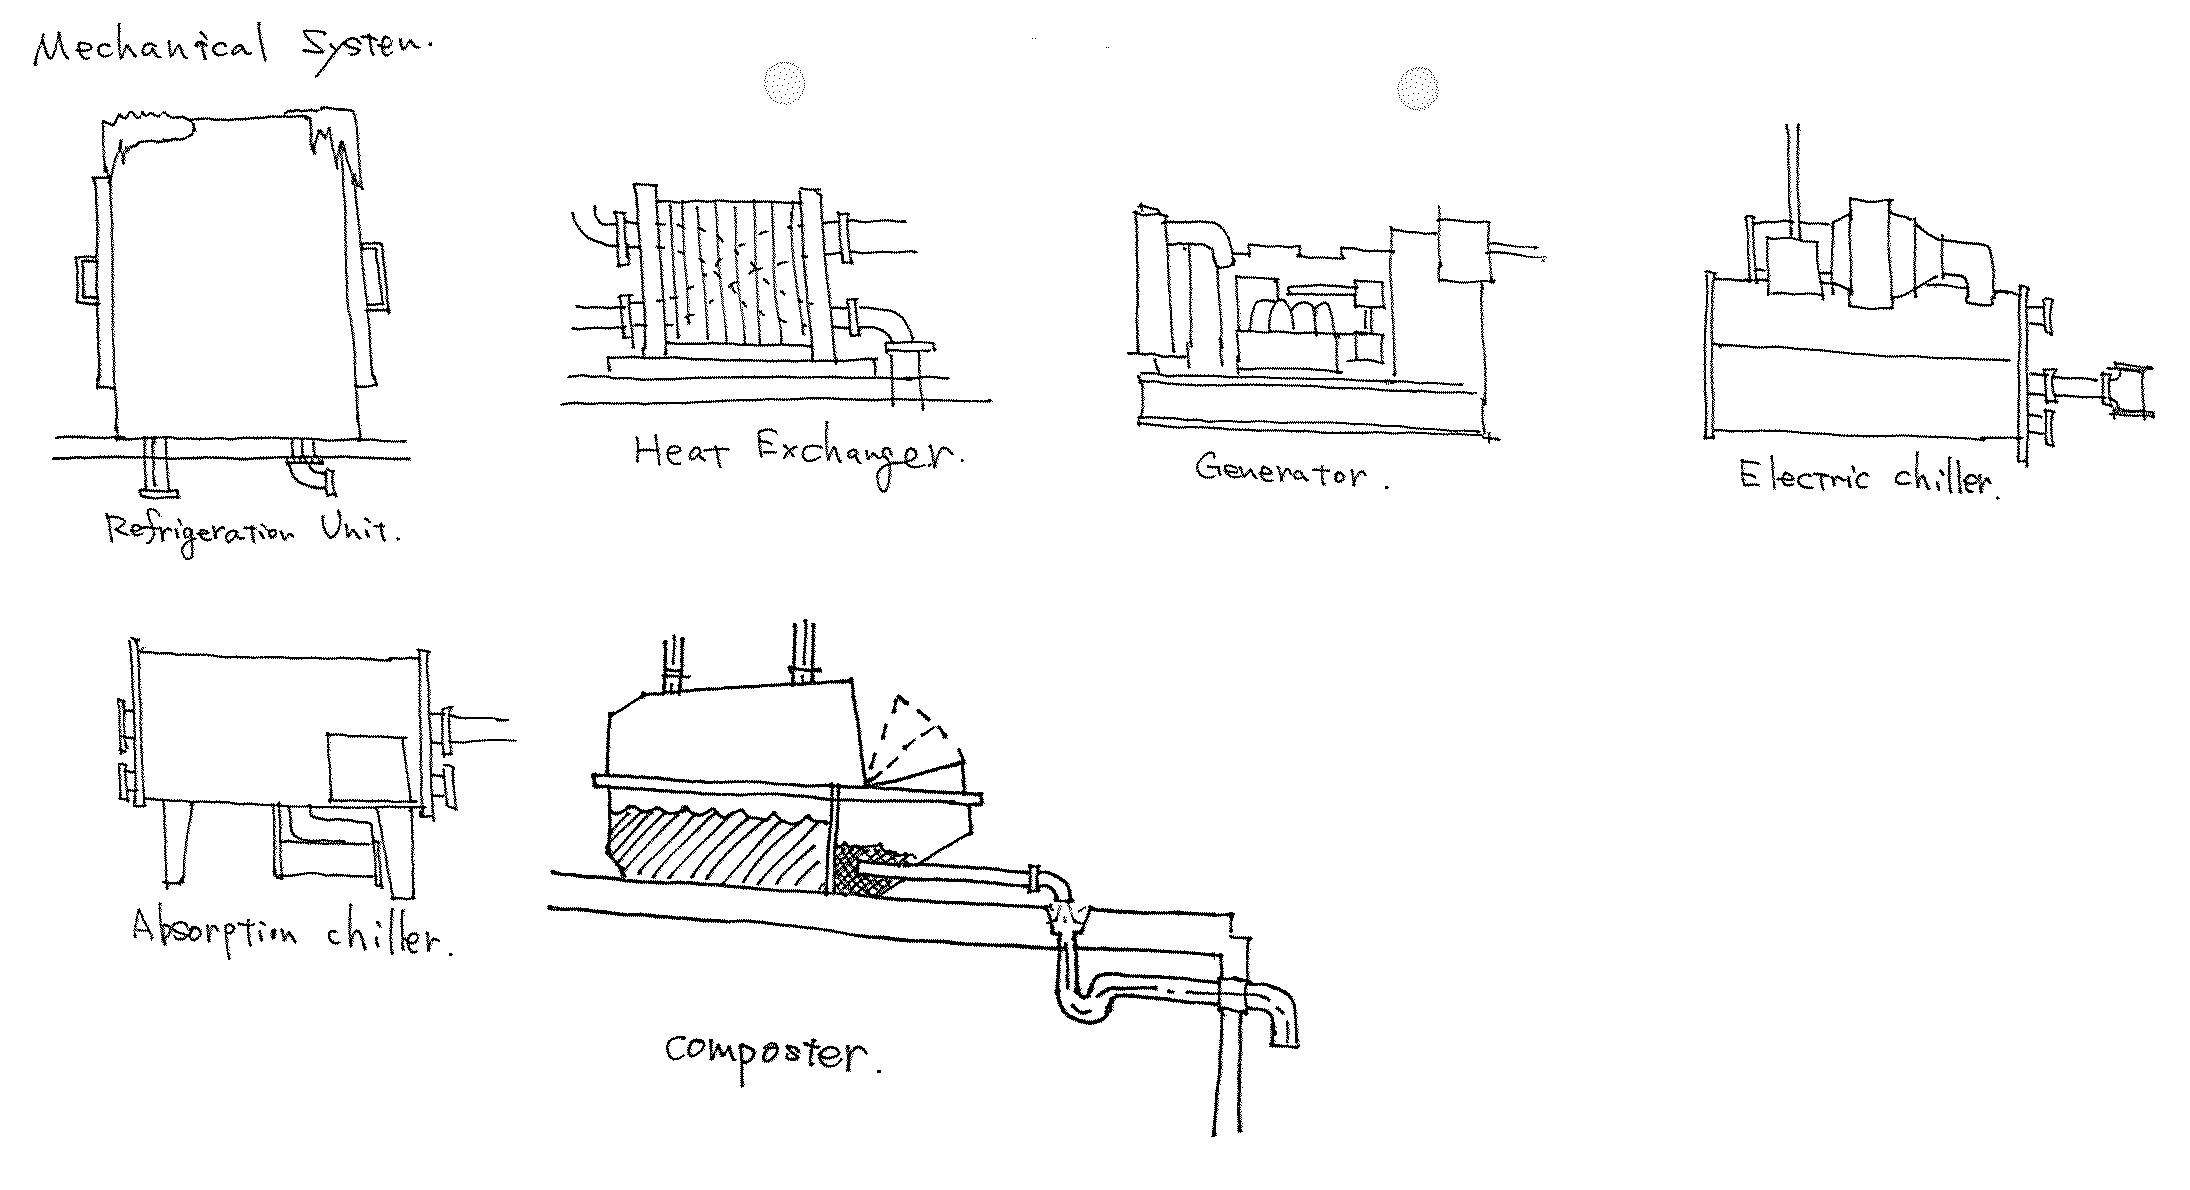 Mechanical System.
Refrigeration Unit.
Heat Exchanger.
Generator.
Electric chiller.
Absorption chiller.
Composter.